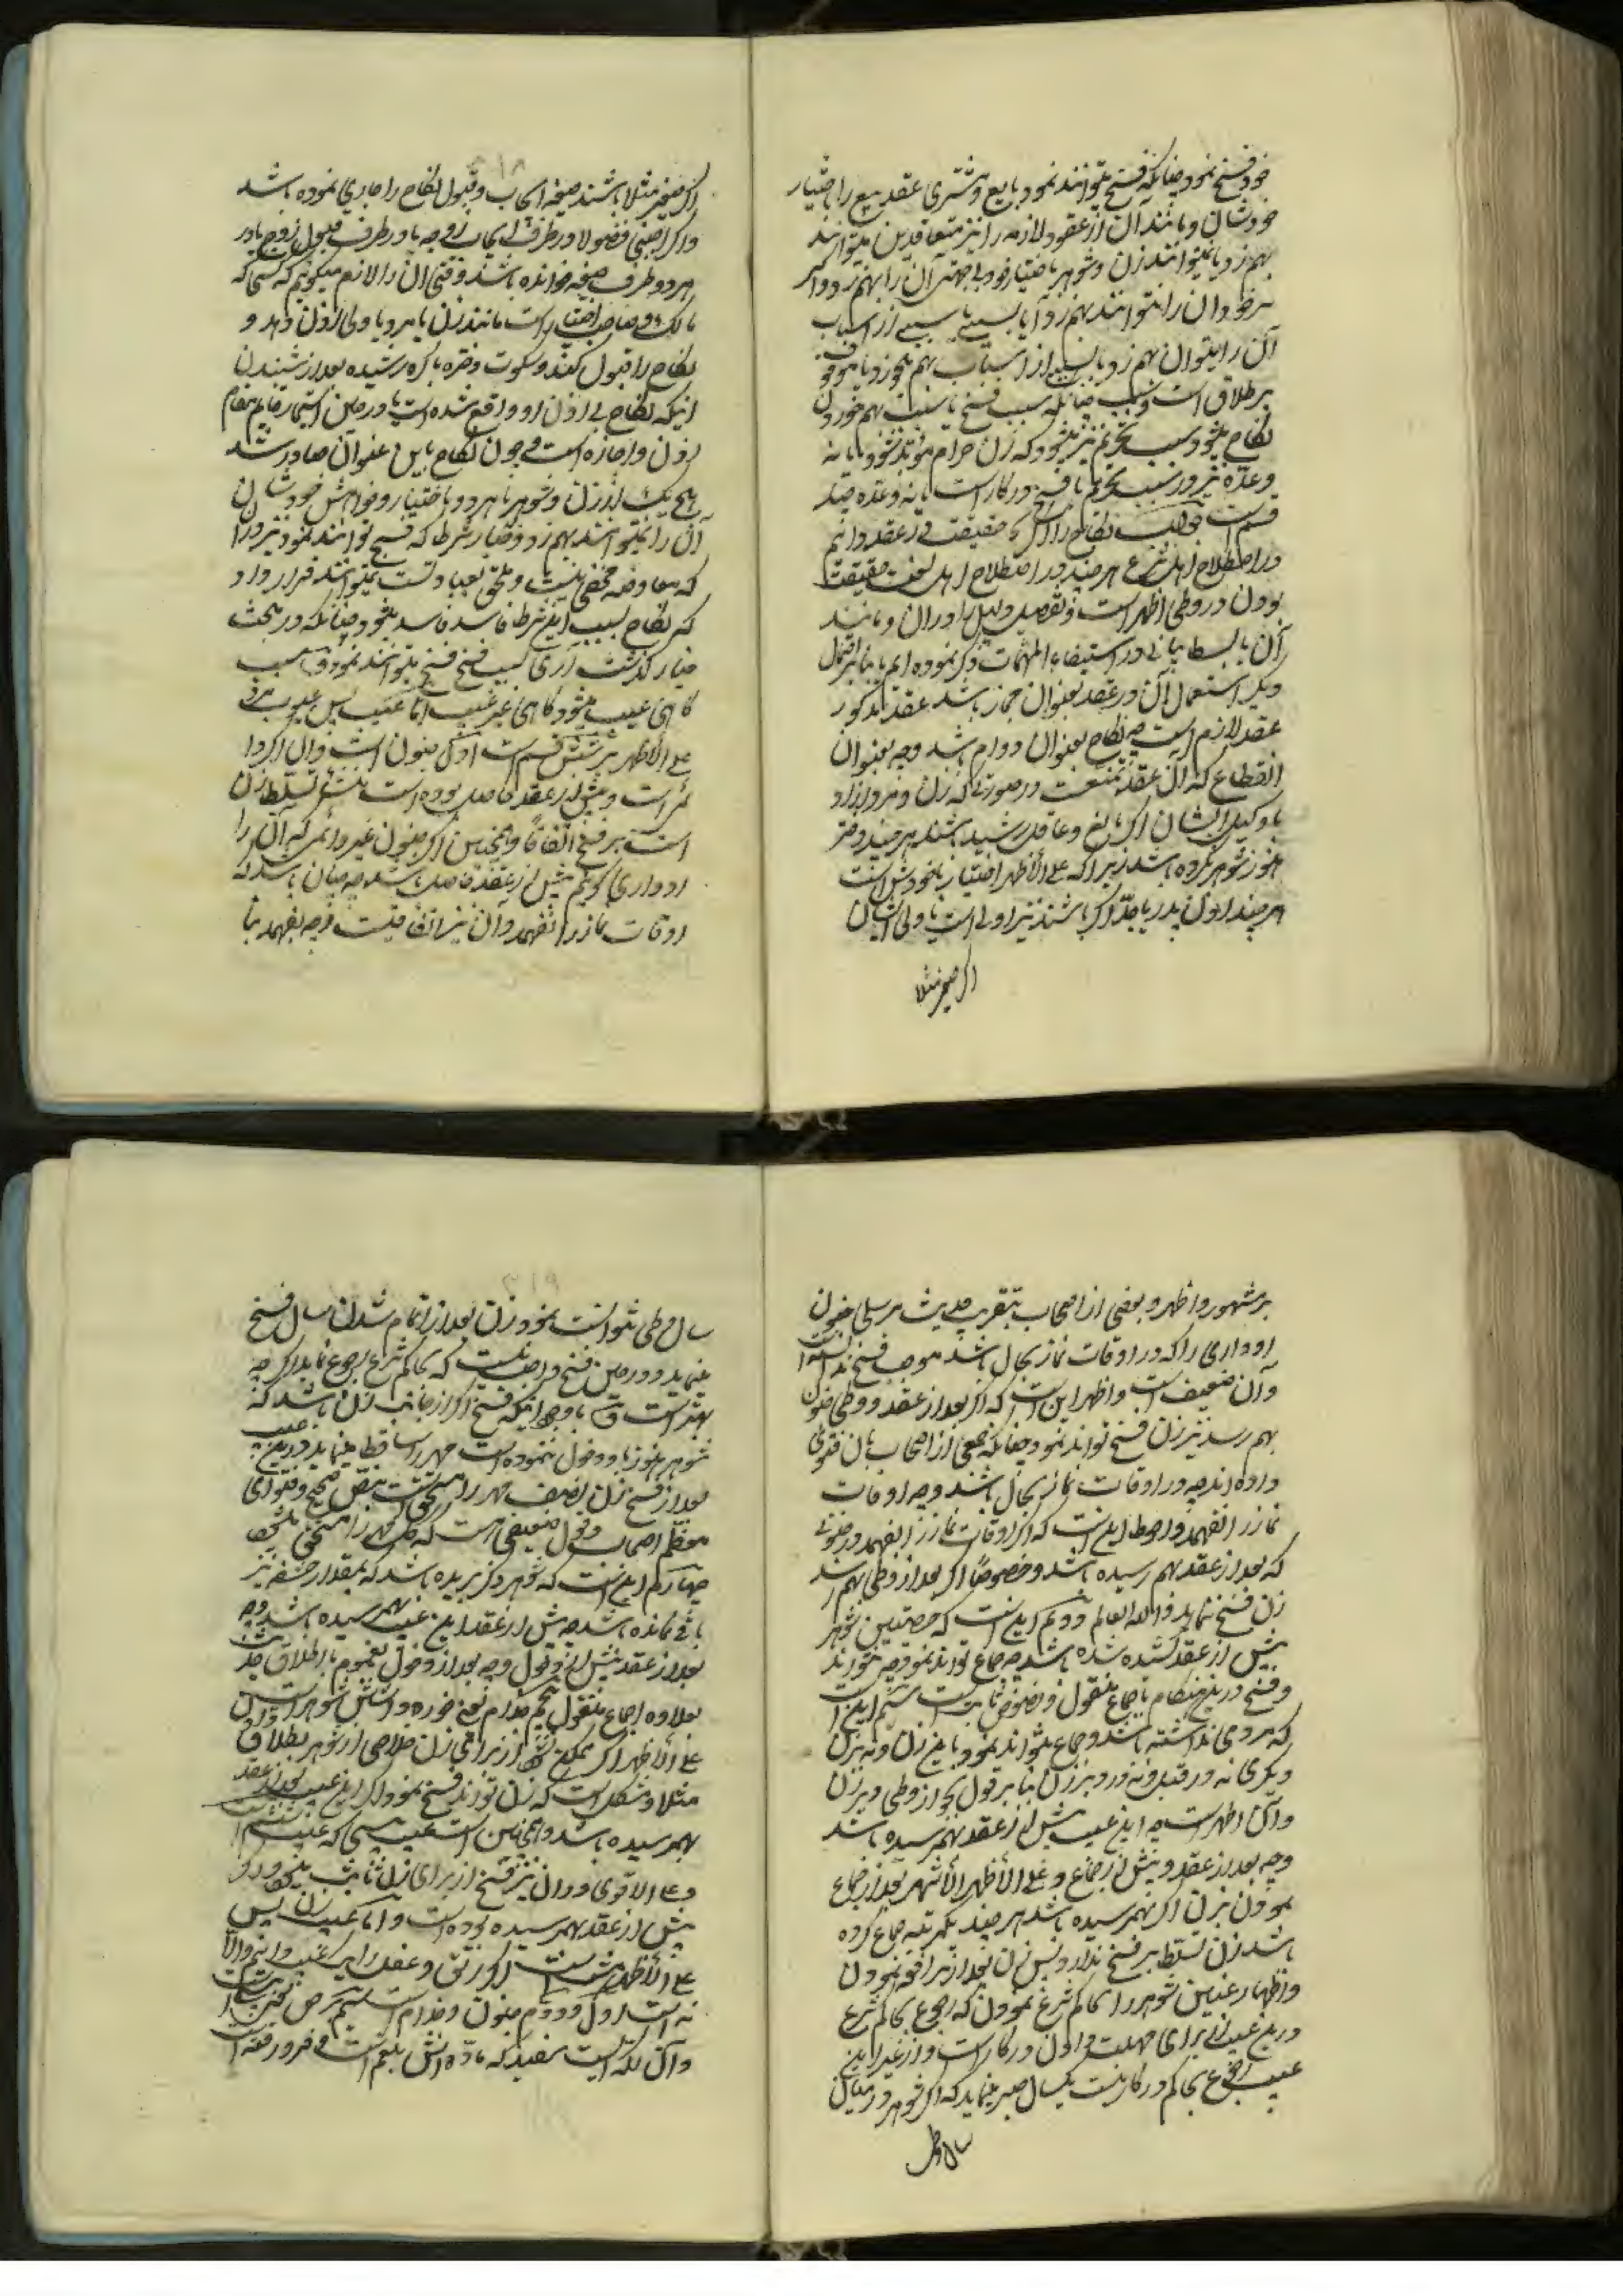 خود فسخ نمود چنانکه فسخ میتوانند نمود بایع و مشتری عقد بیع را باختیار
خودشان و مانند آن از عقود لازمه را نیز متعاقدین میتوانند
بهم زد یا نمیتوانند زن و شوهر باختیار خود بی جهتی آن را بهم زد و اگر
بخودی آن را نتوانند بهم زد آیا بسببی از اسباب
آن را میتوان بهم زد یا بسببی از اسباب بهم میخورد یا موقوف
بر طلاق است و بس چنانکه سبب فسخ یا سبب بهم خوردن
نکاح میشود سبب تحریم نیز میشود که زن حرام مؤبد شود یا نه
و عده نیز در سبب تحریم یا فسخ در کار است یا نه و عده چند
قسم است جواب نکاح را اگر چه حقیقت در عقد دانیم
در اصطلاح اهل شرع هر چند در اصطلاح اهل لغت حقیقت
بودن در وطی اظهر است و تفصیل دلیل را در آن و مانند
آن با بسط بیانی در استیفاء المهمات ذکر نموده ایم یا بنا بر احتمال
دیگر استعمال آن در عقد بعنوان مجاز باشد عقد مذکور
عقد لازم است چه نکاح بعنوان دوام باشد و چه بعنوان
انقطاع که آن عقد تمتعست در صورتی که زن و مرد آزاد
یا وکیل ایشان اگر بالغ و عاقل و رشید باشند هر چند دختر
هنوز شوهر نکرده باشد زیرا که علی الأظهر اختیار با خودش است
هر چند اذن پدر یا جد اگر باشند نیز اولی است یا ولی ایشان
اگر صغیر مثلا
۳۱۸
اگر صغیر مثلا باشند صیغه ایجاب و قبول نکاح را جاری نموده باشد
و اگر اجنبی فضولا در طرف ایجاب زوجه یا در طرف قبول زوج یا در
هر دو طرف صیغه خوانده باشد وقتی آن را لازم میگوئیم که کسی که
مالک و صاحب اختیار است مانند زن یا مرد یا ولی اذن دهد و
نکاح را قبول کند و سکوت دختر باکره رشیده بعد از شنیدن
اینکه نکاح بی اذن او واقع شده است یا در حین استیمار قایم مقام
اذن و اجازه است و چون نکاح باین عنوان صادر شد
هیچ یک از زن و شوهر یا هر دو باختیار و خواهش خودشان
آن را نمیتوانند بهم زد و خیار شرط که فسخ توانند نمود نیز در آن
که معاوضه محضی نیست و ملحق بعبادتست نمیتوانند قرار داد
که نکاح بسبب این شرط فاسد فاسد میشود چنانکه در بحث
خیار گذشت آری بسبب فسخ فسخ میتوانند نمود و سبب
گاهی عیب میشود گاهی غیر عیب اما عیب پس عیوب مرد
علی الأظهر بر شش قسم است اول جنون است و آن اگر دا
ئم است و پیش از عقد حاصل بوده است منشأ تسلط زن
است بر فسخ اتفاقا و همچنین اگر جنون غیر دائمی که آن را
ادواری گویم پیش از عقد حاصل باشد چه چنان باشد که
اوقات نماز را نفهمد و آن نیز اتفاقیست و چه بفهمد بنا
بر مشهور و اظهر و بعضی از اصحاب بتقریب حدیث مرسلی جنون
ادواری را که در اوقات نماز بحال باشد موجب فسخ ندانسته
و آن ضعیف است و اظهر این است که اگر بعد از عقد و وطی جنون
بهم رسد نیز زن فسخ تواند نمود چنانکه جمعی از اصحاب بآن فتوی
داده اند چه در اوقات نماز بحال باشد و چه اوقات
نماز را نفهمد و احوط اینست که اگر اوقات نماز را نفهمد در جنونی
که بعد از عقد بهم رسیده باشد و خصوصا اگر بعد از وطی بهم رسد
زن فسخ ننماید والله العالم دویم اینست که خصیتین شوهر
پیش از عقد کشیده شده باشد چه جماع تواند نمود و چه نتواند
و فسخ در این هنگام باجماع منقول و نصوص ثابت است سیم این است
که مردی نداشته باشد و جماع نتواند نمود با این زن و نه بزن
دیگری نه در قبل و نه در دبر زن بنا بر قول بجواز وطی دبر زن
و آن اظهر است چه این عیب پیش از عقد بهم رسیده باشد
و چه بعد از عقد و پیش از جماع و علی الأظهر الأشهر بعد از جماع
نمودن بزن اگر بهم رسیده باشد هر چند یکمرتبه جماع کرده
باشد زن تسلط بر فسخ ندارد و پس زن بعد از مرافعه نمودن
و اظهار عنین شوهر را بحاکم شرع نمودن که رجوع بحاکم شرع
در این عیب از برای مهلت دادن در کار است و از غیر این
عیب رجوع بحاکم در کار نیست یکسال صبر مینماید که اگر شوهر در میان
سال وطی
۳۱۹
سال وطی نتوانست نمود زن بعد از تمام شدن سال فسخ
مینماید و در حین فسخ واجب نیست که بحاکم شرع رجوع نماید اگر چه
بهتر است و با وجود اینکه فسخ اگر از جانب زن باشد که
شوهر هنوز با او دخول ننموده است مهر را ساقط مینماید در این عیب
بعد از فسخ زن نصف مهر را مستحق است بنص صحیح و فتوای
معظم اصحاب و قول ضعیفی هست که کل مهر را مستحق میشود
چهارم اینست که شوهر ذکر بریده باشد که بمقدار حشفه نیز
باقی نمانده باشد چه پیش از عقد این عیب بهم رسیده باشد و چه
بعد از عقد پیش از دخول و چه بعد از دخول بعموم یا اطلاق حدیث
بعلاوه اجماع منقول پنجم جذام یعنی خوره داشتن شوهر است و آن
علی الأظهر اگر ممکن نشود از برای زن خلاصی از شوهر بطلاق
مثلا و مشکل است که زن تواند فسخ نمود اگر این عیب بعد از عقد
بهم رسیده باشد و همچنین است عیب پیسی که عیب ششم است
و علی الاقوی در آن نیز فسخ از برای زن ثابت میشود اگر
پیش از عقد بهم رسیده بوده است و اما عیب زن پس
علی الأظهر هشت است اگر رتق و عفل را یک عیب دانیم و الا
نه است اول و دوم جنون و جذام است سیم برص یعنی پیسی است
و آن لکه ایست سفید که ماده اش بلغم است و فرو رفته است